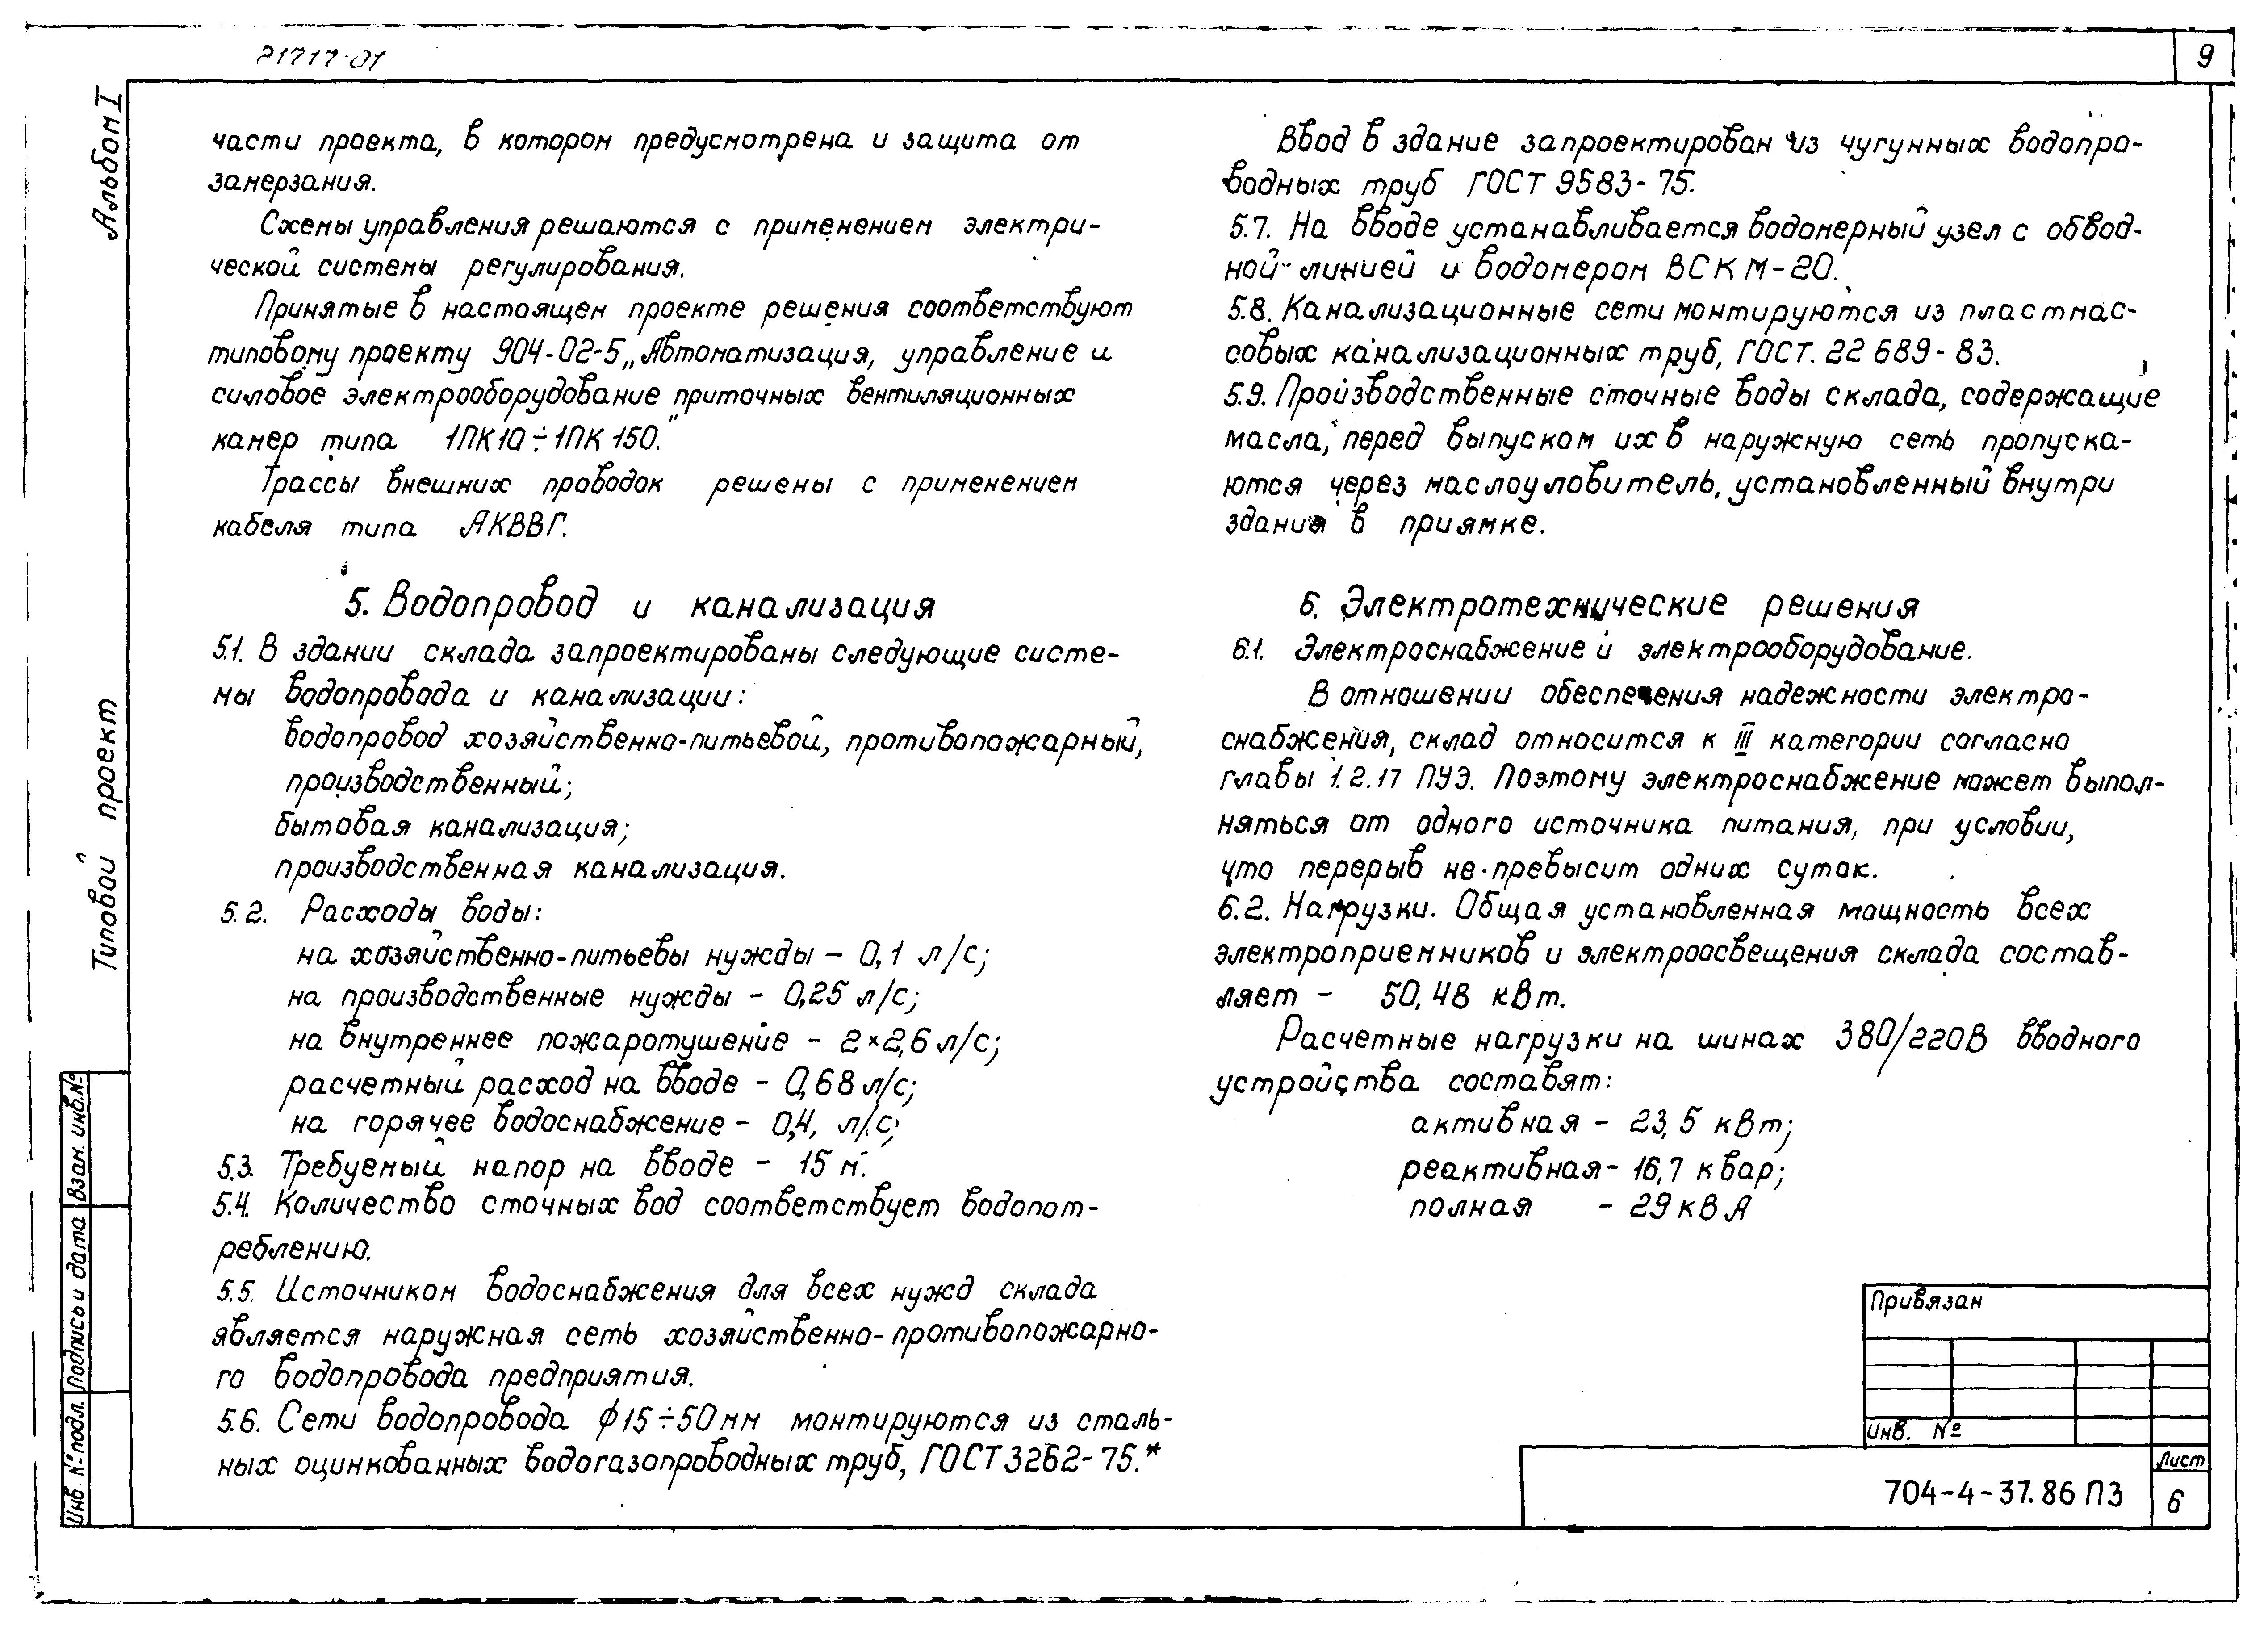 21717-01
9
Альбом I
Типовой проект
части проекта, в котором предусмотрена и защита от
замерзания.
Схемы управления решаются с применением электри-
ческой системы регулирования.
Принятые в настоящем проекте решения соответствуют
типовому проекту 904-02-5 „Автоматизация, управление и
силовое электрооборудование приточных вентиляционных
камер типа 1ПК10÷1ПК150."
Трассы внешних проводок решены с применением
кабеля типа АКВВГ.
5. Водопровод и канализация
5.1. В здании склада запроектированы следующие систе-
мы водопровода и канализации:
водопровод хозяйственно-питьевой, противопожарный,
производственный;
бытовая канализация;
производственная канализация.
5.2. Расходы воды:
на хозяйственно-питьевы нужды – 0,1 л/с;
на производственные нужды – 0,25 л/с;
на внутреннее пожаротушение – 2×2,6 л/с;
расчетный расход на вводе – 0,68 л/с;
на горячее водоснабжение – 0,4, л/с;
5.3. Требуемый напор на вводе – 15 м.
5.4. Количество сточных вод соответствует водопот-
реблению.
5.5. Источником водоснабжения для всех нужд склада
является наружная сеть хозяйственно-противопожарно-
го водопровода предприятия.
5.6. Сети водопровода ϕ15÷50мм монтируются из сталь-
ных оцинкованных водогазопроводных труб, ГОСТ 3262-75.*
Ввод в здание запроектирован из чугунных водопро-
водных труб ГОСТ 9583-75.
5.7. На вводе устанавливается водомерный узел с обвод-
ной линией и водомером ВСКМ-20.
5.8. Канализационные сети монтируются из пластмас-
совых канализационных труб, ГОСТ. 22689-83.
5.9. Производственные сточные воды склада, содержащие
масла, перед выпуском их в наружную сеть пропуска-
ются через маслоуловитель, установленный внутри
здания в приямке.
6. Электротехнические решения
6.1. Электроснабжение и электрооборудование.
В отношении обеспечения надежности электро-
снабжения, склад относится к III категории согласно
главы 1.2.17 ПУЭ. Поэтому электроснабжение может выпол-
няться от одного источника питания, при условии,
что перерыв не превысит одних суток.
6.2. Нагрузки. Общая установленная мощность всех
электроприемников и электроосвещения склада состав-
ляет – 50,48 кВт.
Расчетные нагрузки на шинах 380/220В вводного
устройства составят:
активная – 23,5 кВт;
реактивная – 16,7 квар;
полная – 29 кВА
Привязан
Инв. №
704-4-37.86 ПЗ
Лист
6
Взам. инв. №
Подпись и дата
Инв № подл.